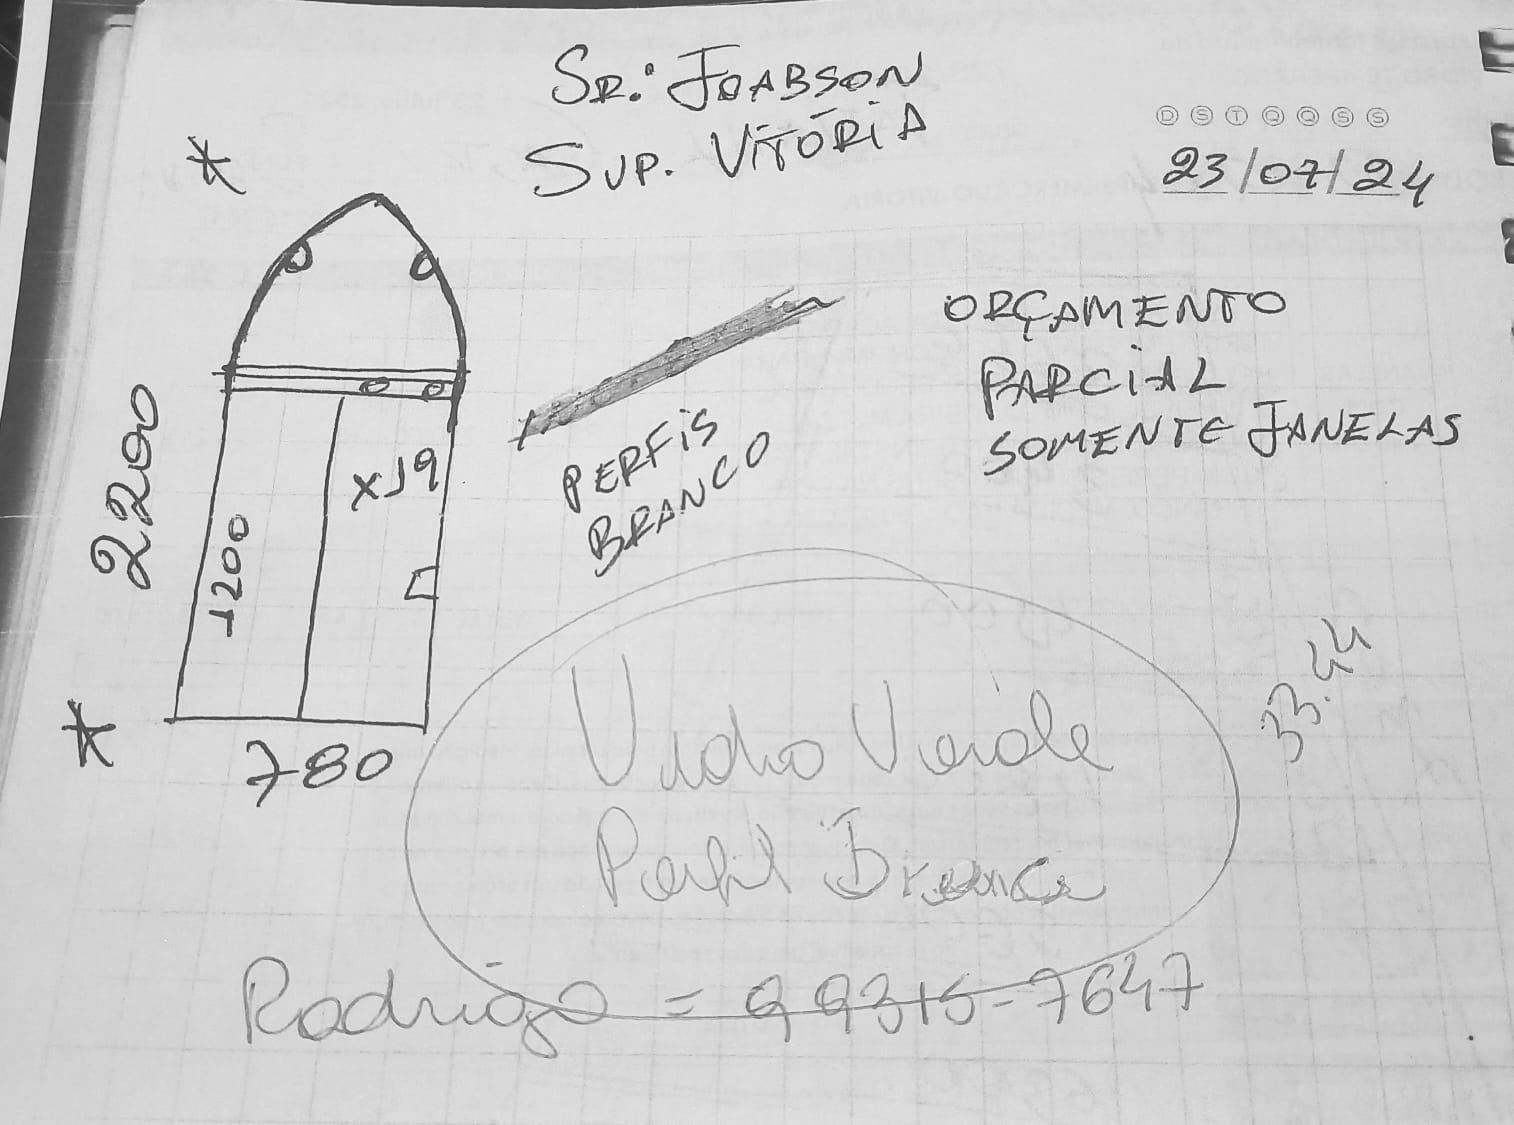 SR: JOABSON
SUP. VITÓRIA
D S T Q Q S S
23/07/24
ORÇAMENTO
PARCIAL
SOMENTE JANELAS
PERFIS
BRANCO
2200
1200
x19
780
Vidro Verde
Perfil Branco
33.44
Rodrigo = 99315-7647